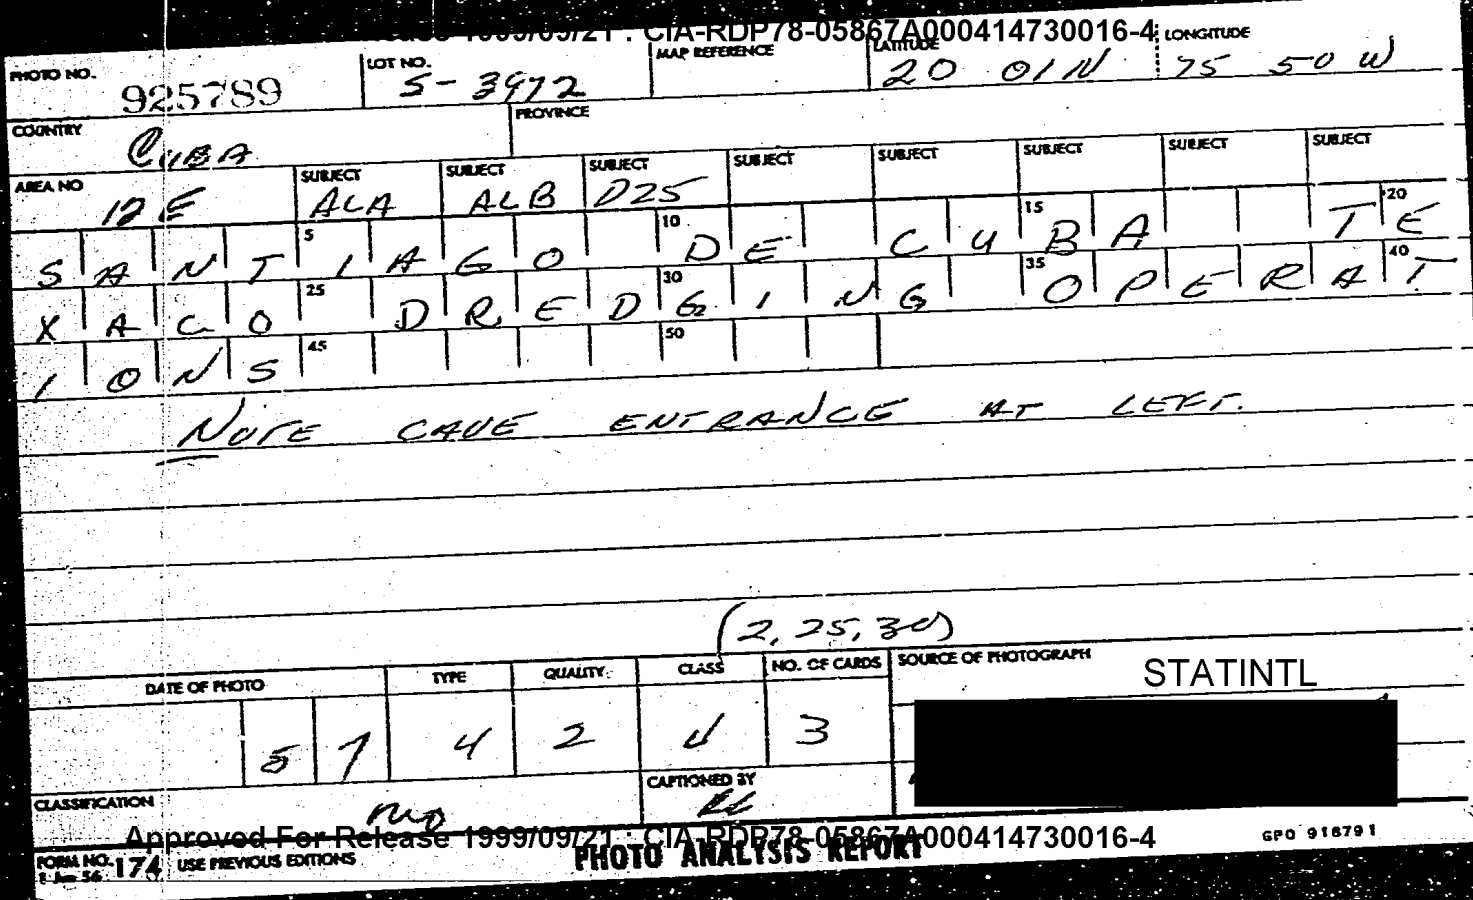 1999/09/21 : CIA-RDP78-05867A000414730016-4
PHOTO NO. 925789 LOT NO. S-3972 MAP REFERENCE LATITUDE 20 01 N LONGITUDE 75 50 W
COUNTRY CUBA PROVINCE
AREA NO 12 E SUBJECT ALA SUBJECT ALB SUBJECT D25 SUBJECT SUBJECT SUBJECT SUBJECT SUBJECT
5 10 15 20
SANTIAGO DE CUBA TE
25 30 35 40
XACO DREDGING OPERAT
45 50
IONS
NOTE CAVE ENTRANCE AT LEFT.
(2, 25, 30)
DATE OF PHOTO TYPE QUALITY CLASS NO. OF CARDS SOURCE OF PHOTOGRAPH
STATINTL
5 7 4 2 U 3
CLASSIFICATION CAPTIONED BY
Approved For Release 1999/09/21 : CIA-RDP78-05867A000414730016-4
GPO 916791
FORM NO. 174 USE PREVIOUS EDITIONS PHOTO ANALYSIS REPORT
56